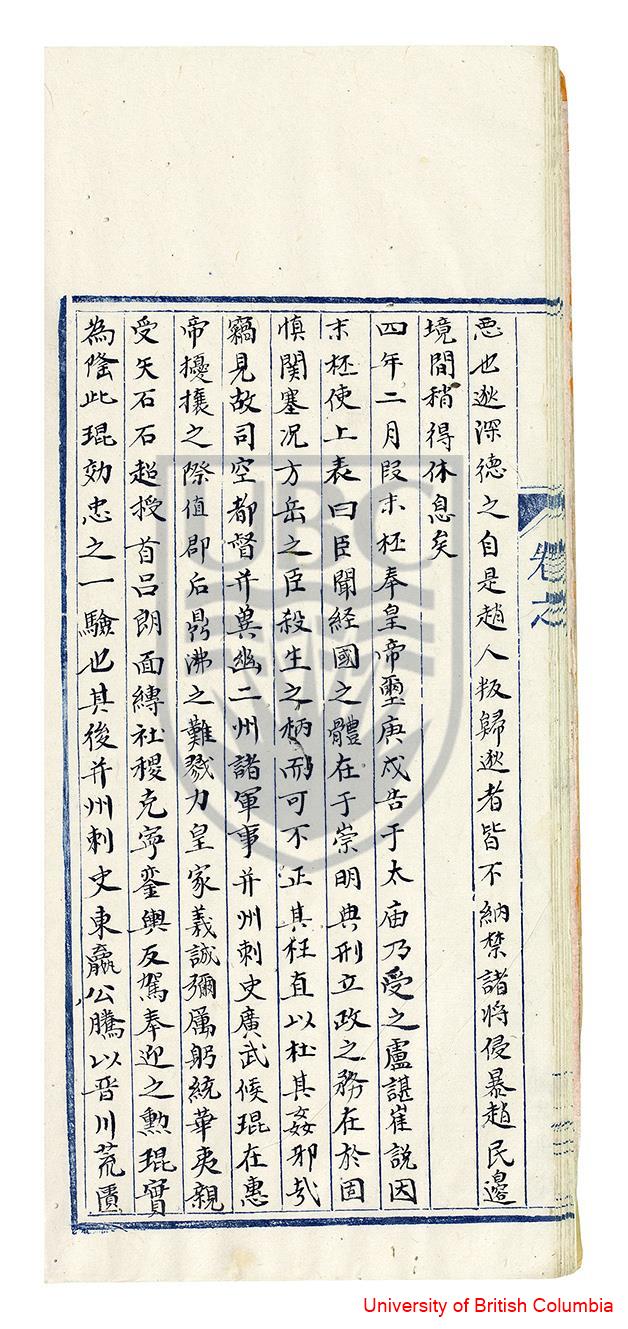 惡也逖深德之自是趙人叛歸逖者皆不納禁諸將侵暴趙民邊
境間稍得休息矣
四年二月段末柸奉皇帝璽庚戍告于太庙乃受之盧諶崔說因
末柸使上表曰臣聞経國之體在于崇明典刑立政之務在於固
慎関塞况方岳之臣殺生之柄而可不正其枉直以杜其姦邪㢤
竊見故司空都督并冀幽二州諸軍事并州刺史廣武候琨在惠
帝擾攘之際值郡后鼎沸之難戮力皇家義誠彌厲躬統華夷親
受矢石石超授首呂朗面縛社稷克寧鑾輿反駕奉迎之勲琨實
為隆此琨効忠之一驗也其後并州刺史東嬴公騰以晋川荒匱
卷之
UBC
University of British Columbia